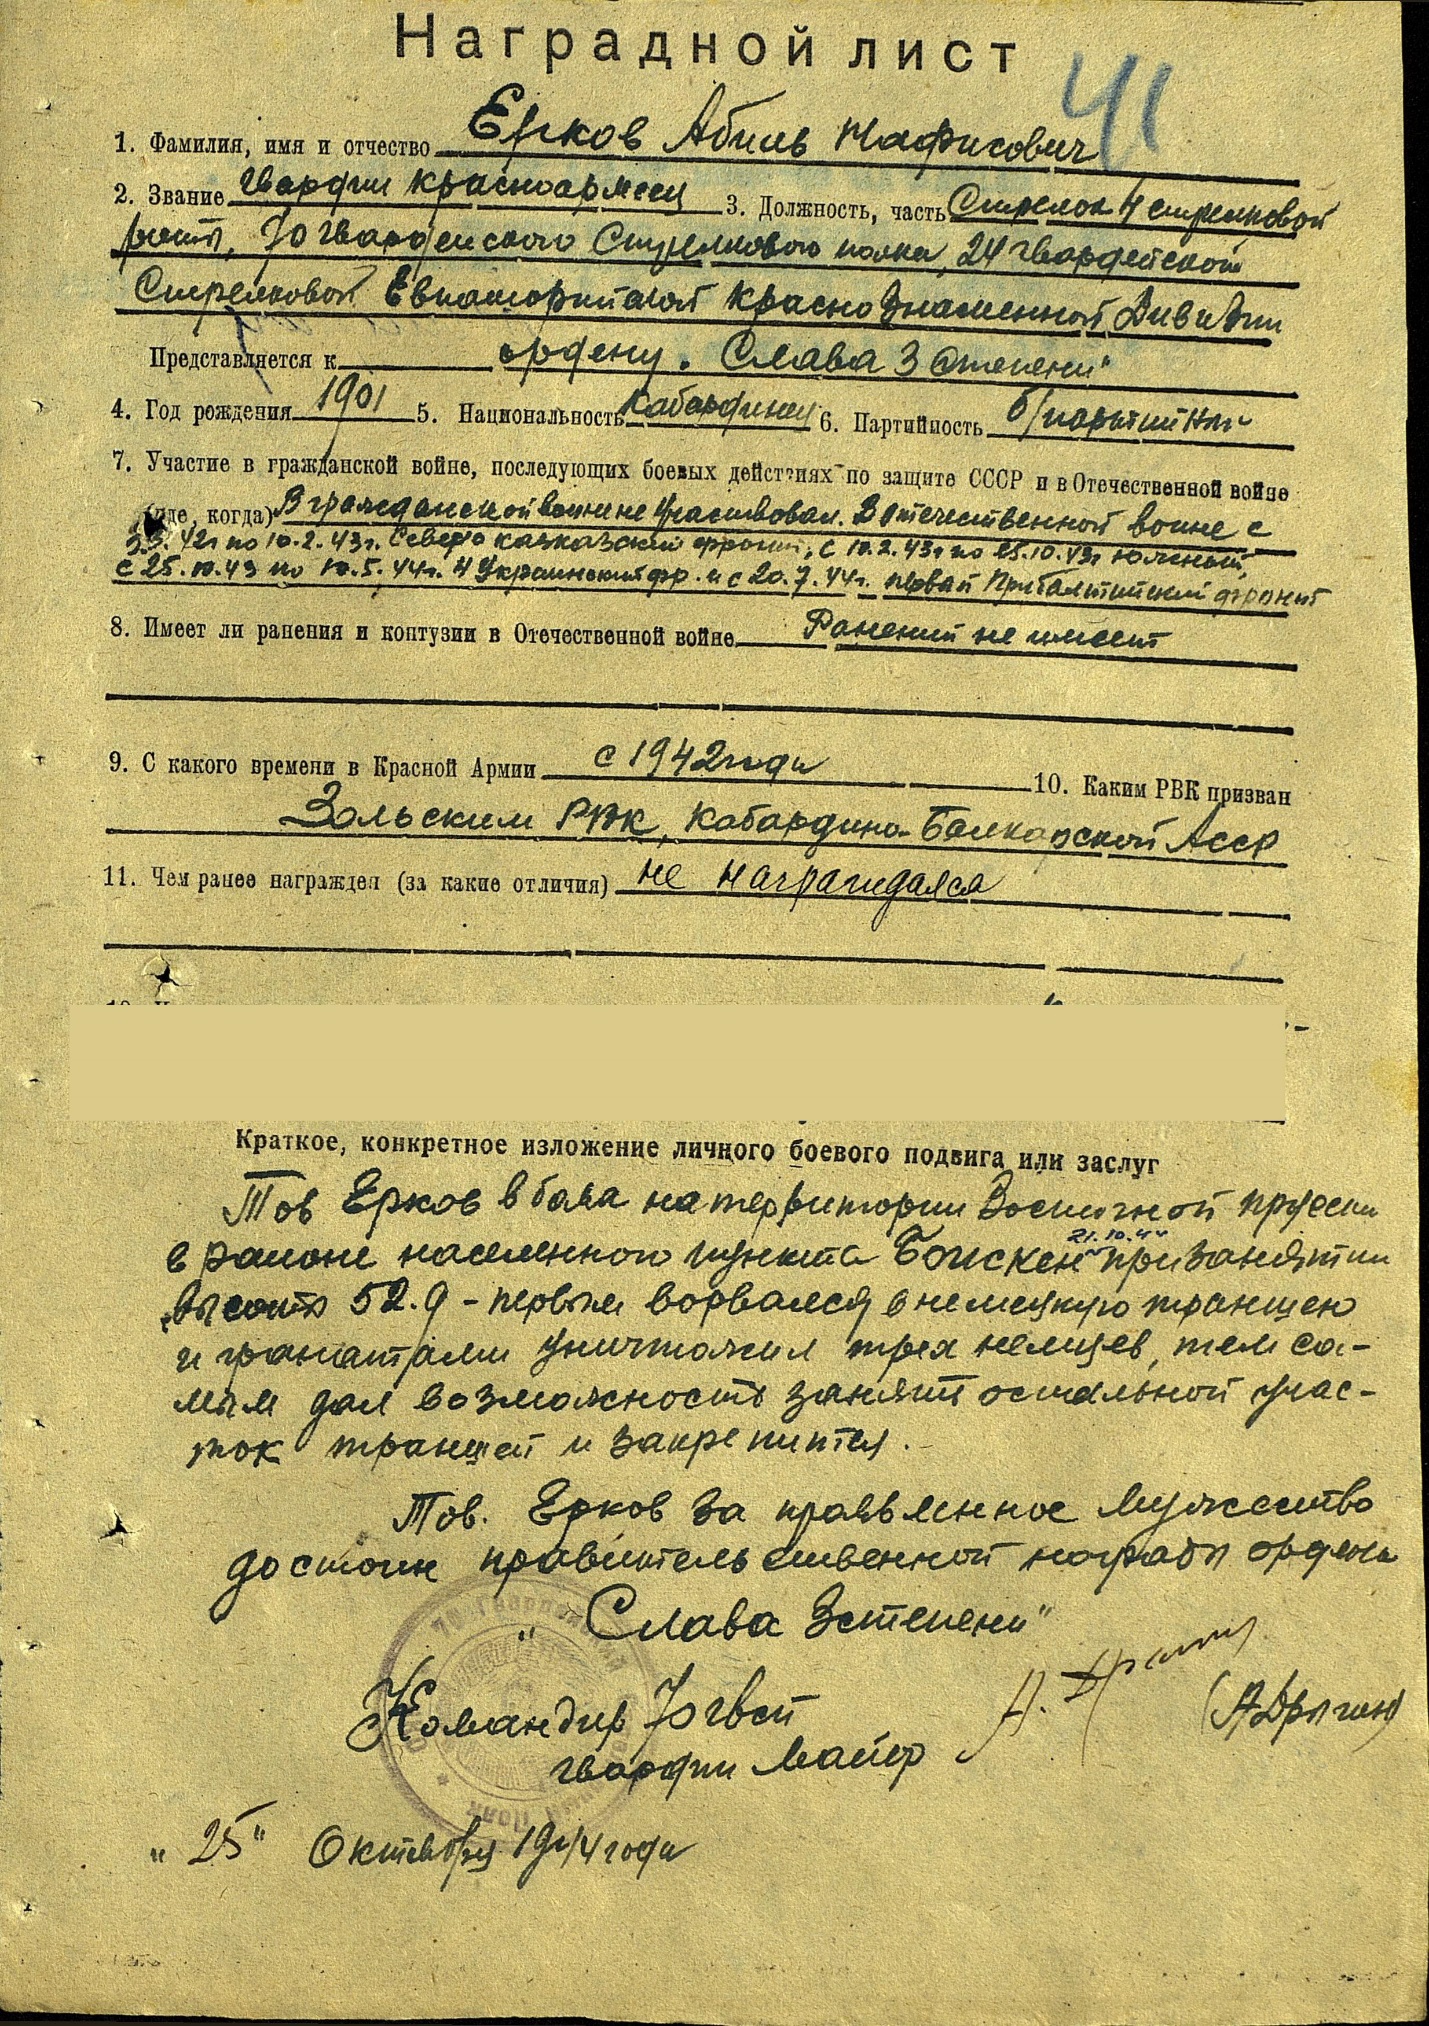 Наградной лист
41
1. Фамилия, имя и отчество Ерков Абиль Нафисович
2. Звание Гвардии Красноармеец 3. Должность, часть Стрелок 4 стрелковой
роты, 70 гвардейского Стрелкового полка, 24 гвардейской
Стрелковой Евпаторийской Краснознаменной Дивизии
Представляется к ордену "Слава 3 степени"
4. Год рождения 1901 5. Национальность Кабардинец 6. Партийность б/партийный
7. Участие в гражданской войне, последующих боевых действиях по защите СССР и в Отечественной войне
(где, когда) В гражданской войне не участвовал. В отечественной войне с
42г по 10.2.43г. Северо кавказский фронт, с 10.2.43г по 25.10.43г Южный,
с 25.10.43 по 10.5.44г. 4 Украинский фр. и с 20.7.44г. первый Прибалтийский фронт
8. Имеет ли ранения и контузии в Отечественной войне Ранений не имеет
9. С какого времени в Красной Армии с 1942 года 10. Каким РВК призван
Зольским РВК, Кабардино-Балкарской АССР
11. Чем ранее награжден (за какие отличия) не награждался
Краткое, конкретное изложение личного боевого подвига или заслуг
Тов Ерков в боях на территории Восточной пруссии
21.10.44
в районе населенного пункта Бойскен при занятии
высоты 52.9 - первым ворвался в немецкую траншею
и гранатами уничтожил трех немцев, тем са-
мым дал возможность занять остальной учас-
ток траншей и закрепится.
Тов. Ерков за проявленное мужество
достоин правительственной награды ордена
"Слава 3 степени"
Командир 70 гвсп
гвардии Майор (А Дрыгин)
"25" Октября 1944 года